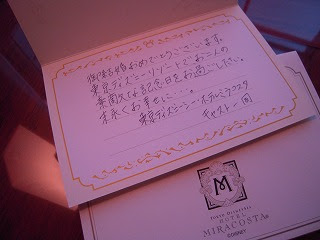 御結婚おめでとうございます。
東京ディズニーリゾートでお二人の
素敵な記念日をお過ごし下さい。
末永くお幸せに…。
東京ディズニーシー・ホテルミラコスタ
キャスト一同
M
TOKYO DISNEYSEA
HOTEL
MIRACOSTA
©DISNEY